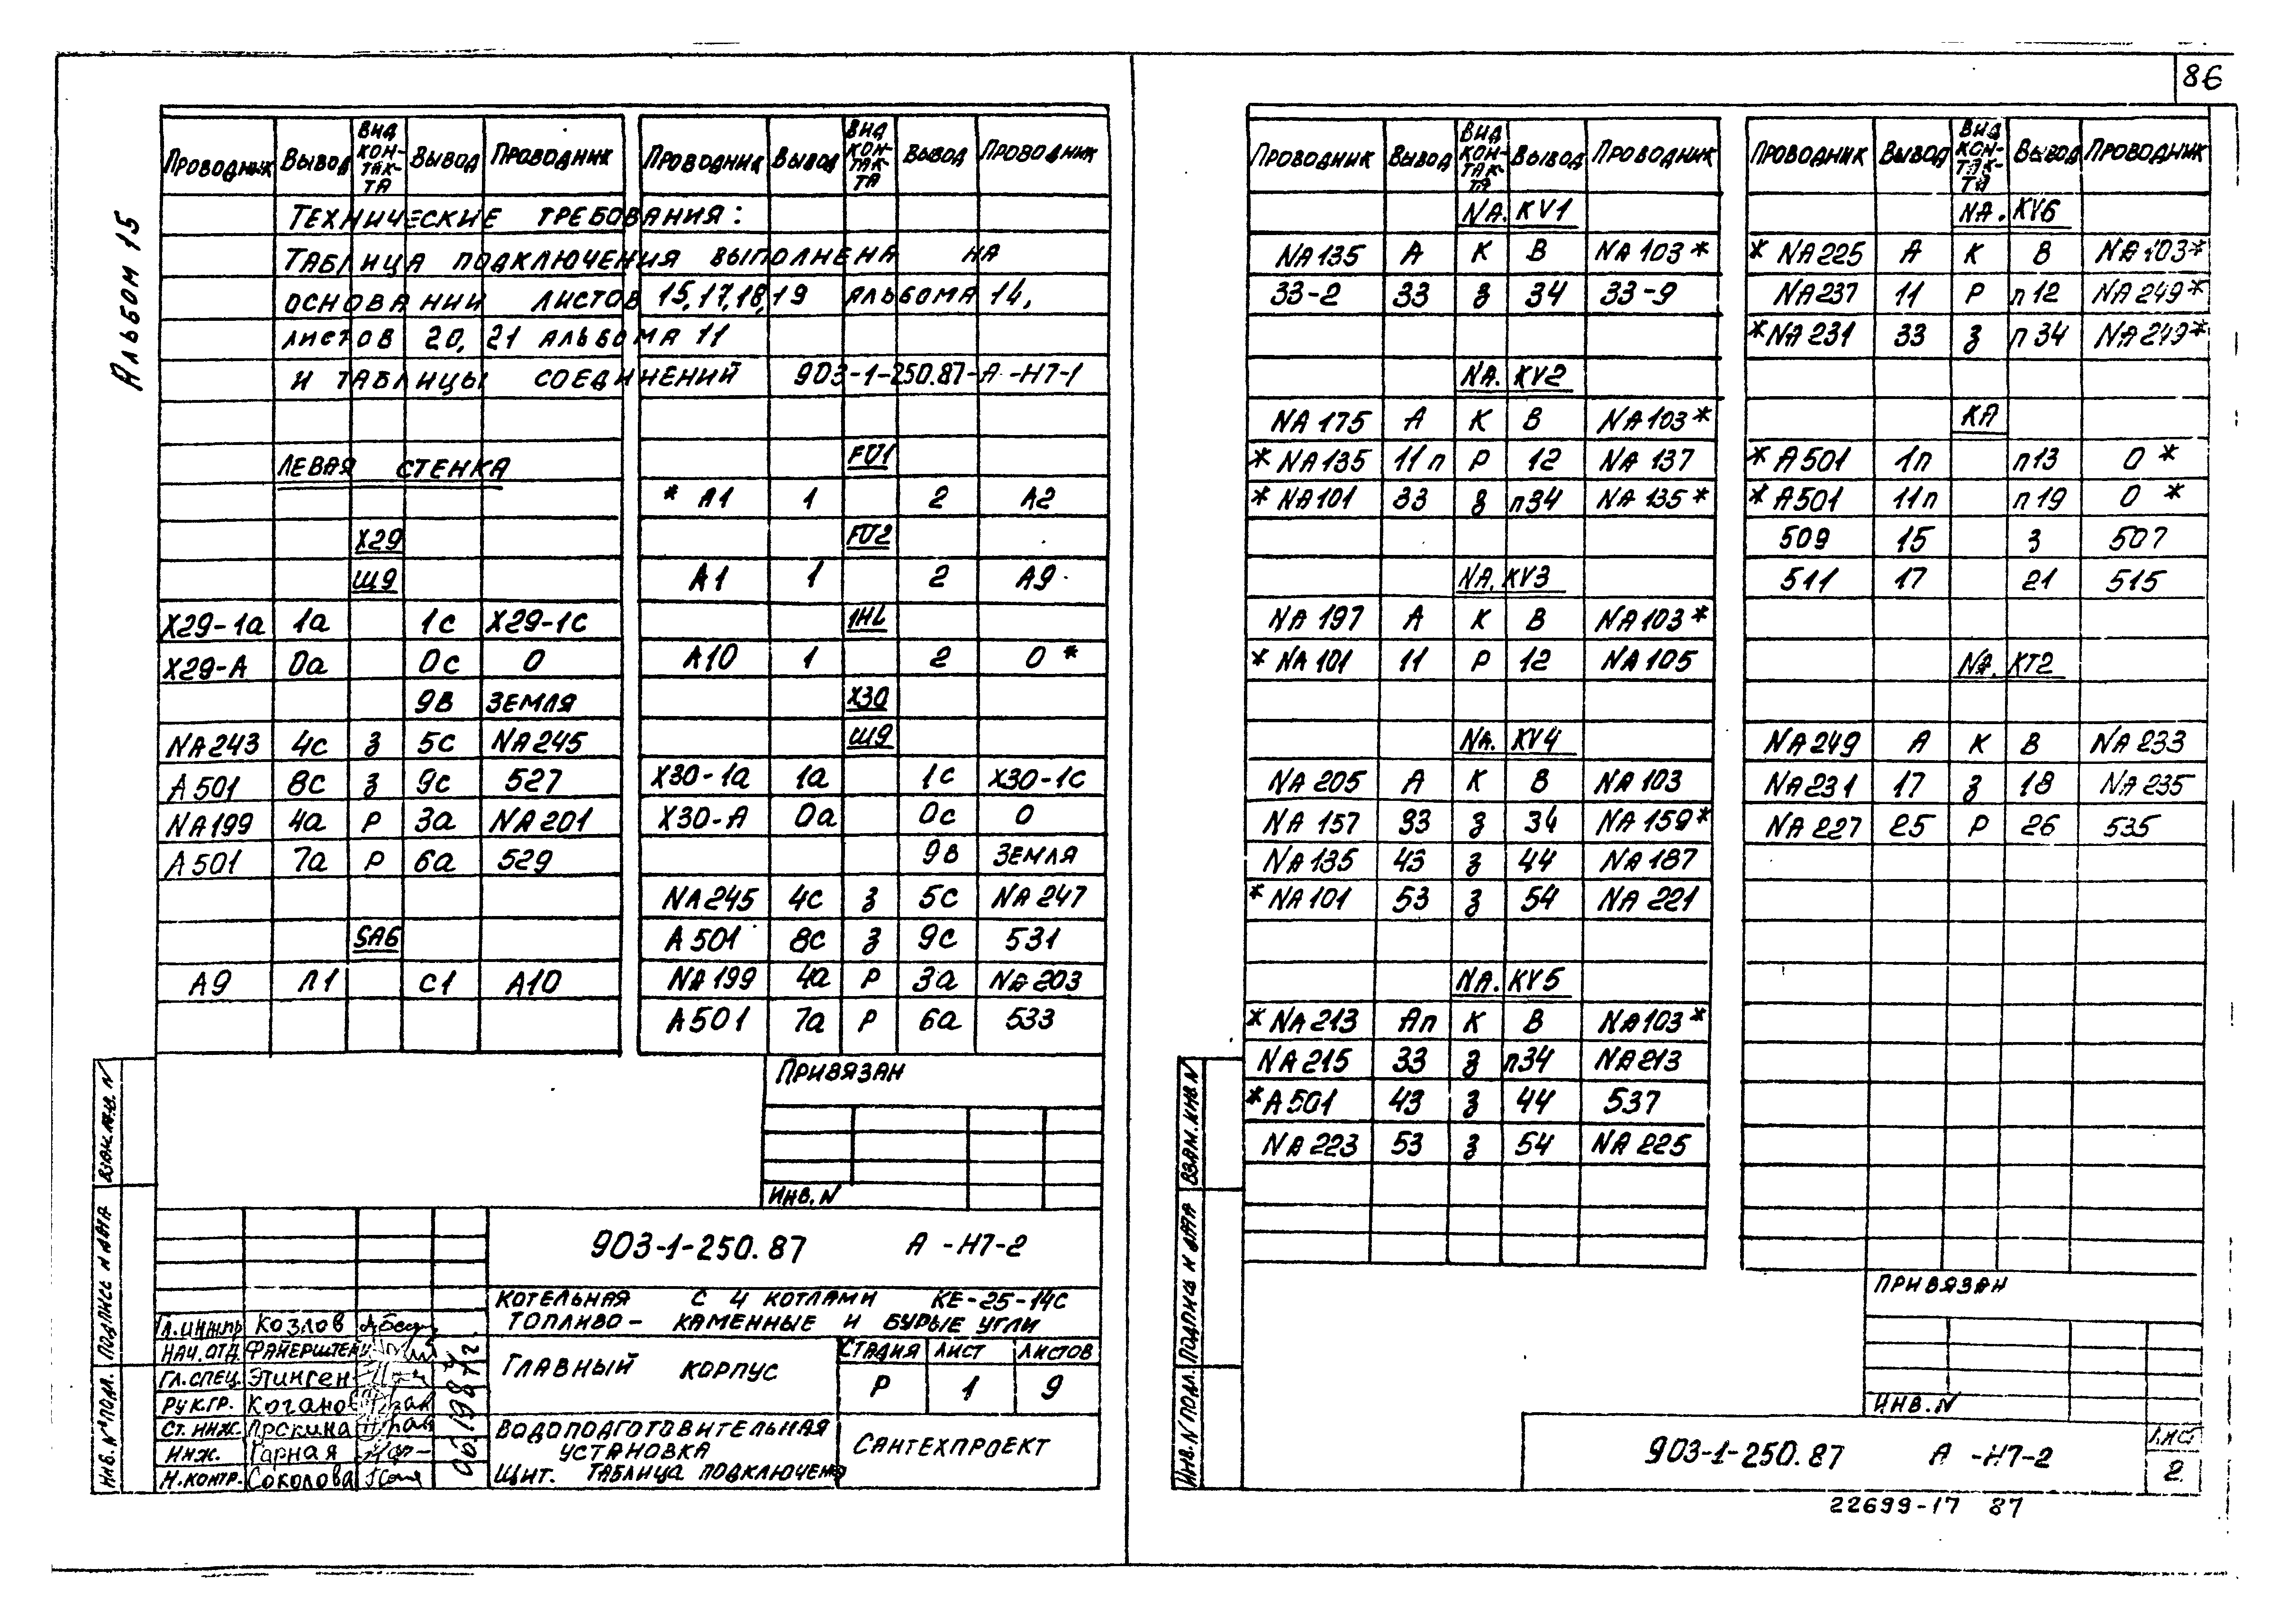 86
Альбом 15
Проводник Вывод Вид контакта Вывод Проводник
Технические требования:
Таблица подключения выполнена на
основании листов 15,17,18,19 альбома 14,
листов 20, 21 альбома 11
и таблицы соединений 903-1-250.87-А-Н7-1
Левая стенка
Х29
Щ9
Х29-1а 1а 1с Х29-1с
Х29-А 0а 0с 0
9в Земля
NA243 4с з 5с NA245
А501 8с з 9с 527
NA199 4а Р 3а NA201
А501 7а Р 6а 529
SA6
А9 Л1 С1 А10
Проводник Вывод Вид контакта Вывод Проводник
FU1
* А1 1 2 А2
FU2
А1 1 2 А9
1HL
А10 1 2 0 *
Х30
Щ9
Х30-1а 1а 1с Х30-1с
Х30-А 0а 0с 0
9в Земля
NA245 4с з 5с NA247
А501 8с з 9с 531
NA199 4а Р 3а NA203
А501 7а Р 6а 533
Привязан
Инв. N
903-1-250.87 А -Н7-2
Котельная с 4 котлами КЕ-25-14с
Топливо - каменные и бурые угли
Главный корпус
Стадия Лист Листов
Р 1 9
Водоподготовительная
установка
Щит. Таблица подключен
Сантехпроект
Гл.инж.пр Козлов
Нач.отд. Файерштейн
Гл.спец. Этинген
Рук.гр.
Ст.инж.
Инж. Гарная
Н.контр. Соколова
Взам.инв. N
Подпись и дата
Инв.N подл.
Проводник Вывод Вид контакта Вывод Проводник
NA.KV1
NA135 А К В NA103*
33-2 33 з 34 33-9
NA.KV2
NA175 А К В NA103*
*NA135 11п Р 12 NA137
*NA101 33 з п34 NA135*
NA.KV3
NA197 А К В NA103*
*NA101 11 Р 12 NA105
NA.KV4
NA205 А К В NA103
NA157 33 з 34 NA159*
NA135 43 з 44 NA187
*NA101 53 з 54 NA221
NA.KV5
*NA213 Ап К В NA103*
NA215 33 з п34 NA213
*А501 43 з 44 537
NA223 53 з 54 NA225
Проводник Вывод Вид контакта Вывод Проводник
NA.KV6
*NA225 А К В NA103*
NA237 11 Р п12 NA249*
*NA231 33 з п34 NA249*
КА
*А501 1п п13 0 *
*А501 11п п19 0 *
509 15 3 507
511 17 21 515
NA.KT2
NA249 А К В NA233
NA231 17 з 18 NA235
NA227 25 Р 26 535
Привязан
Инв. N
903-1-250.87 А -Н7-2
Лист
2
Взам.инв.N
Подпись и дата
Инв.N подл.
22699-17 87